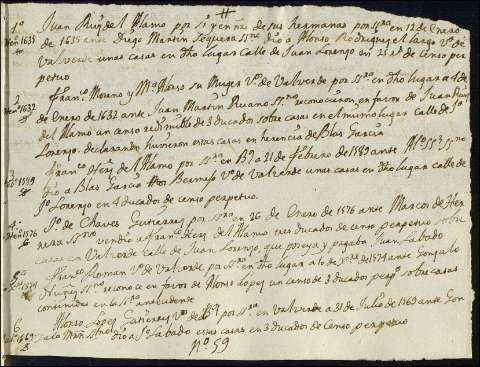 1º Juan Ruiz del Alamo por si y en nre de sus hermanas por ssra en 12 de Enero
de 1635 ante Diego Martin Sequera ssno dio a Alonso Rodriguez el largo vº de
Valverde unas casas en dho lugar Calle de Juan Lorenzo en 25 rs de Censo per
petuo
Franco Moreno y Mª Alonso su Muger vº de Valverde por ssra en dho lugar a 4 de
Enero 1632 de Enero de 1632 ante Juan Martin ssno reconocieron en favor de Juan Ruiz
del Alamo un censo redimible de 3 ducados sobre casas en el mismo lugar calle de Jº
Lorenzo, declarando huvieron estas casas en herencia de Blas Garcia
Franco Hrz del Alamo por ssra en Bz 21 de febrero de 1589 ante ssno
dio a Blas Garcia vº de Valverde unas casas en dho lugar calle de
Jº Lorenzo en 4 ducados de censo perpetuo.
4º Jº de Chaves Gutierrez por ssra en 26 de Enero de 1576 ante Marcos de Her
Enero 1576 rera ssno vendio a Franco Hrz del Alamo tres ducados de censo perpetuo sobre
casas en Valverde Calle de Juan Lorenzo, que poseya y pagaba Juan Sabado
Franco Roman vº de Valverde por ssra en dho lugar a 10 de de 1574 ante Gonzalo
ssno reconoce en favor de Alonso Lopez un censo de 3 ducados perpº sobre casas
contenidas en la ssra antecedente
6 Alonso Lopez Gutierrez vº de Bz por ssra en Valverde a 31 de Julio de 1569 ante Gon
zalo ssno dio a Jº Sabado essas casas en 3 ducados de Censo perpetuo
Nº 59